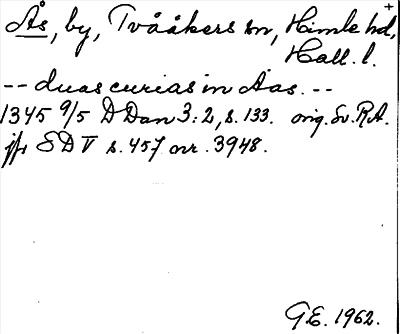 Ås, by, Tvååkers sn, Himle hd,
Hall. l.
-- duas curias in Aas. --
1345 9/5 D Dan 3:2, s. 133. orig. Sv. R.A.
jfr SD V s. 457 nr. 3948.
G.E. 1962.